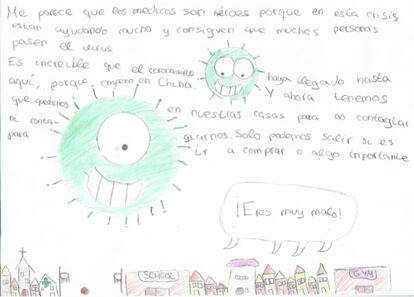 Me parece que los medicos son héroes porque en esta crisis
estan ayudando mucho y consiguen que muchas personas
pasen el virus.
Es increible que el coronavirus haya llegado hasta
aquí, porque, empezo en China. Y ahora tenemos
que quedarnos en nuestras casas para no contagiar
ni conta- giarnos. Solo podemos salir si es
para ir a comprar o algo importante
¡Eres muy malo!
SCHOOL
GYM